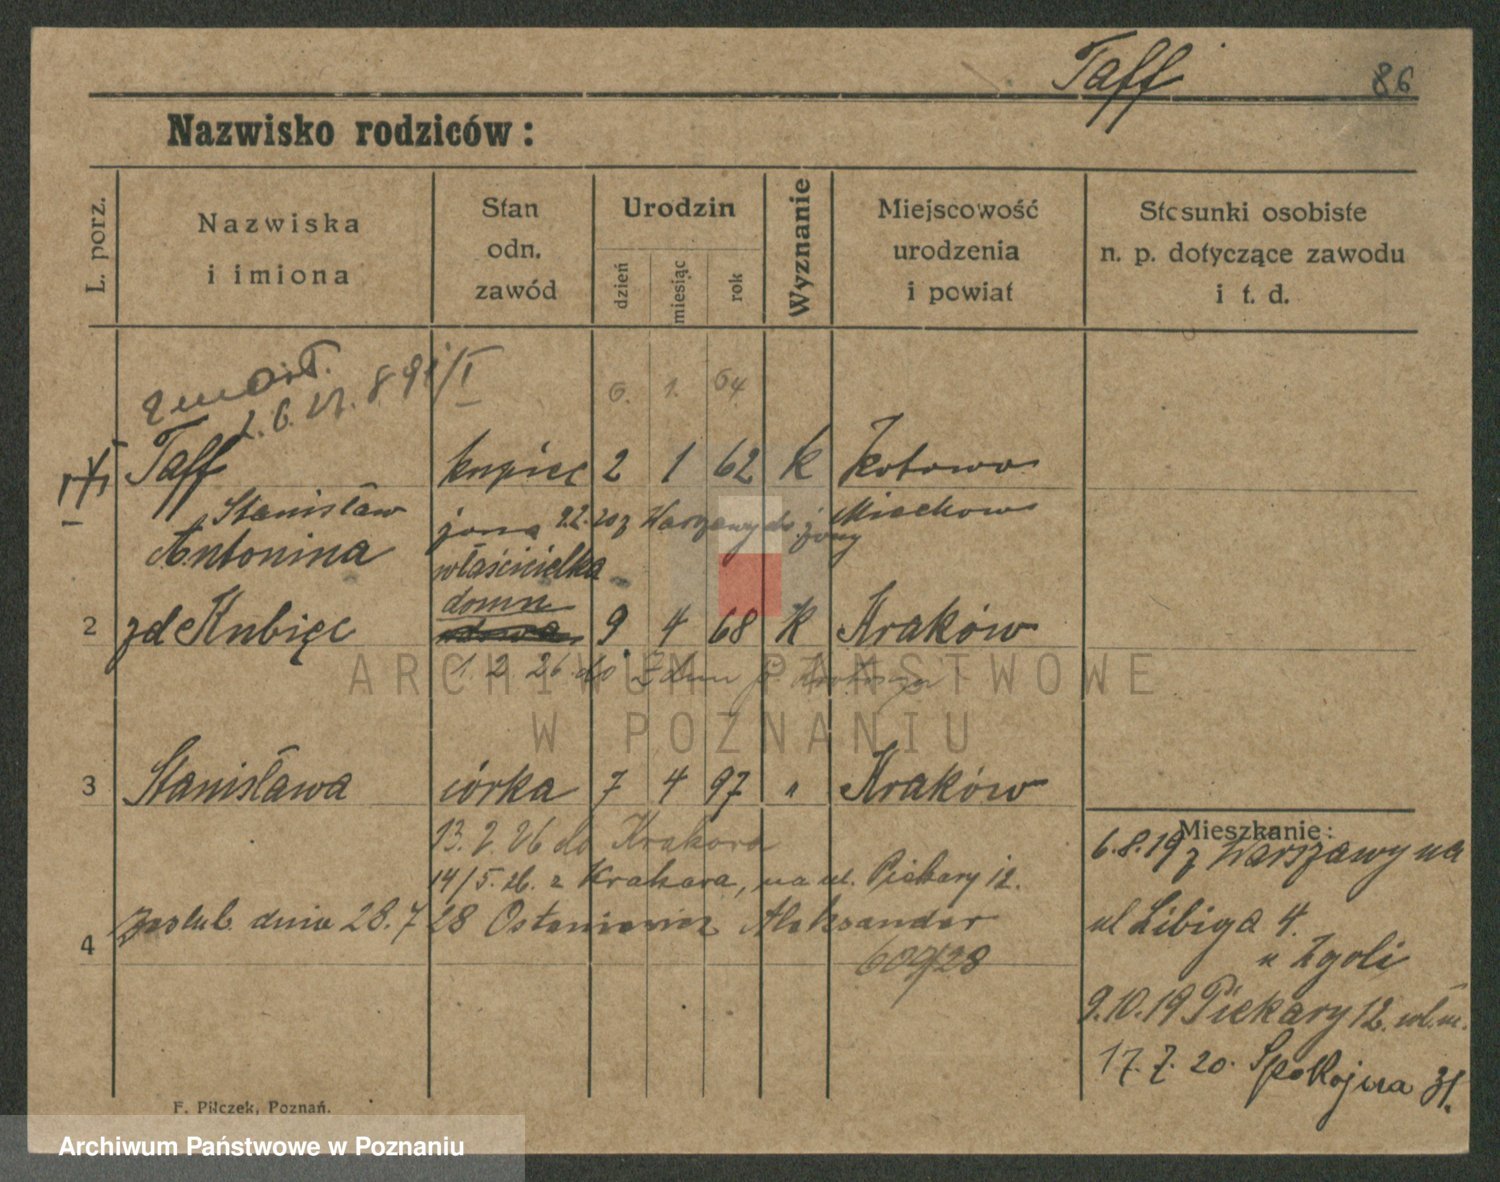 Taff 86
Nazwisko rodziców:
L. porz.
Nazwiska
i imiona
Stan
odn.
zawód
Urodzin
dzień
miesiąc
rok
Wyznanie
Miejscowość
urodzenia
i powiat
Stosunki osobiste
n. p. dotyczące zawodu
i t. d.
zmarł.
6. 1. 64
Taff kupiec 2 1 62 K Kotowo
Stanisław Miechow
żona 9.2.20 z Warszawy do żony
Antonina właścicielka
domu
2 zd Kubięc 9 4 68 K Kraków
1. 2 26 do
3 Stanisława córka 7 4 97 " Kraków
13. 2. 26 do Krakowa
14/5. 26. z Krakowa, na ul. Piekary 12.
4 Zaślub. dnia 28. 7 28 Aleksander
609/28
Mieszkanie:
6.8.19 z Warszawy na
ul Libiga 4.
u Zgoli
9.10.19 Piekary 12. wł. m.
17. 7. 20. Spokojna 31.
F. Pilczek, Poznań.
ARCHIWUM PAŃSTWOWE
W POZNANIU
Archiwum Państwowe w Poznaniu